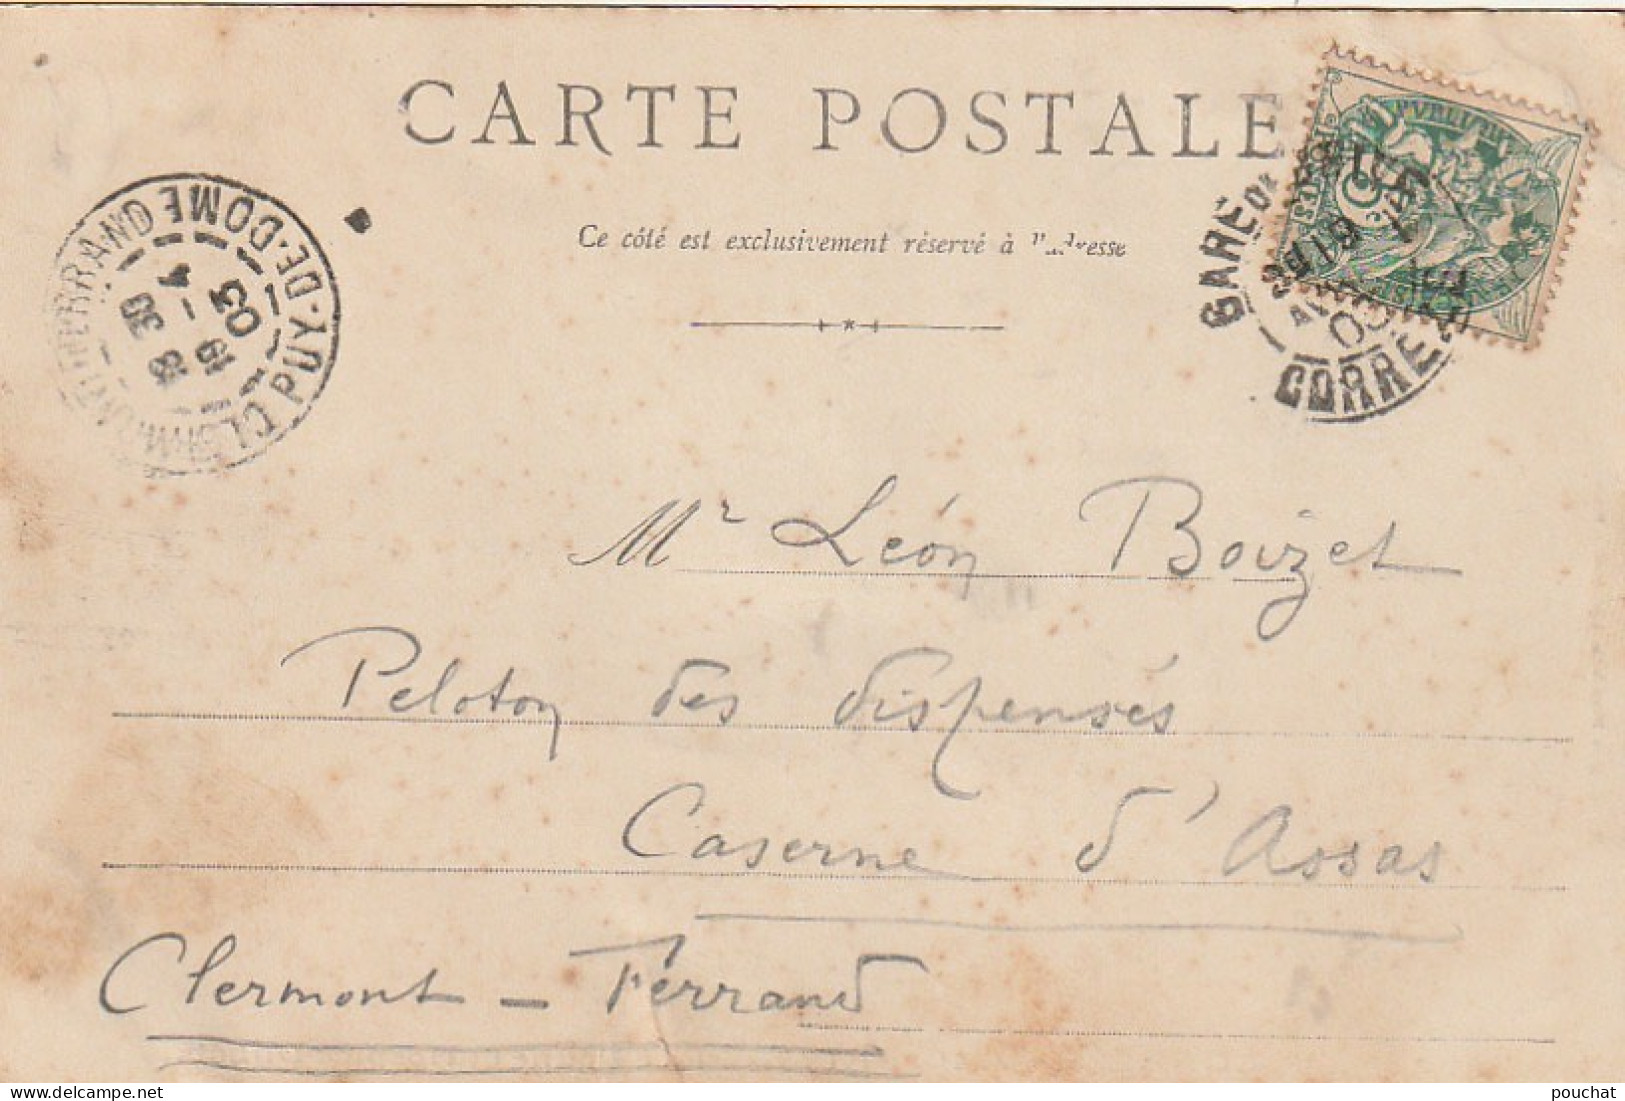 CARTE POSTALE
Ce côté est exclusivement réservé à
CLERMONT-FERRAND PUY-DE-DOME
8 30
19-4
03
GARE DE
CORREZE
Mr Léon Boizet
Peloton des dispensés
Caserne d'Assas
Clermont-Ferrand
pouchat